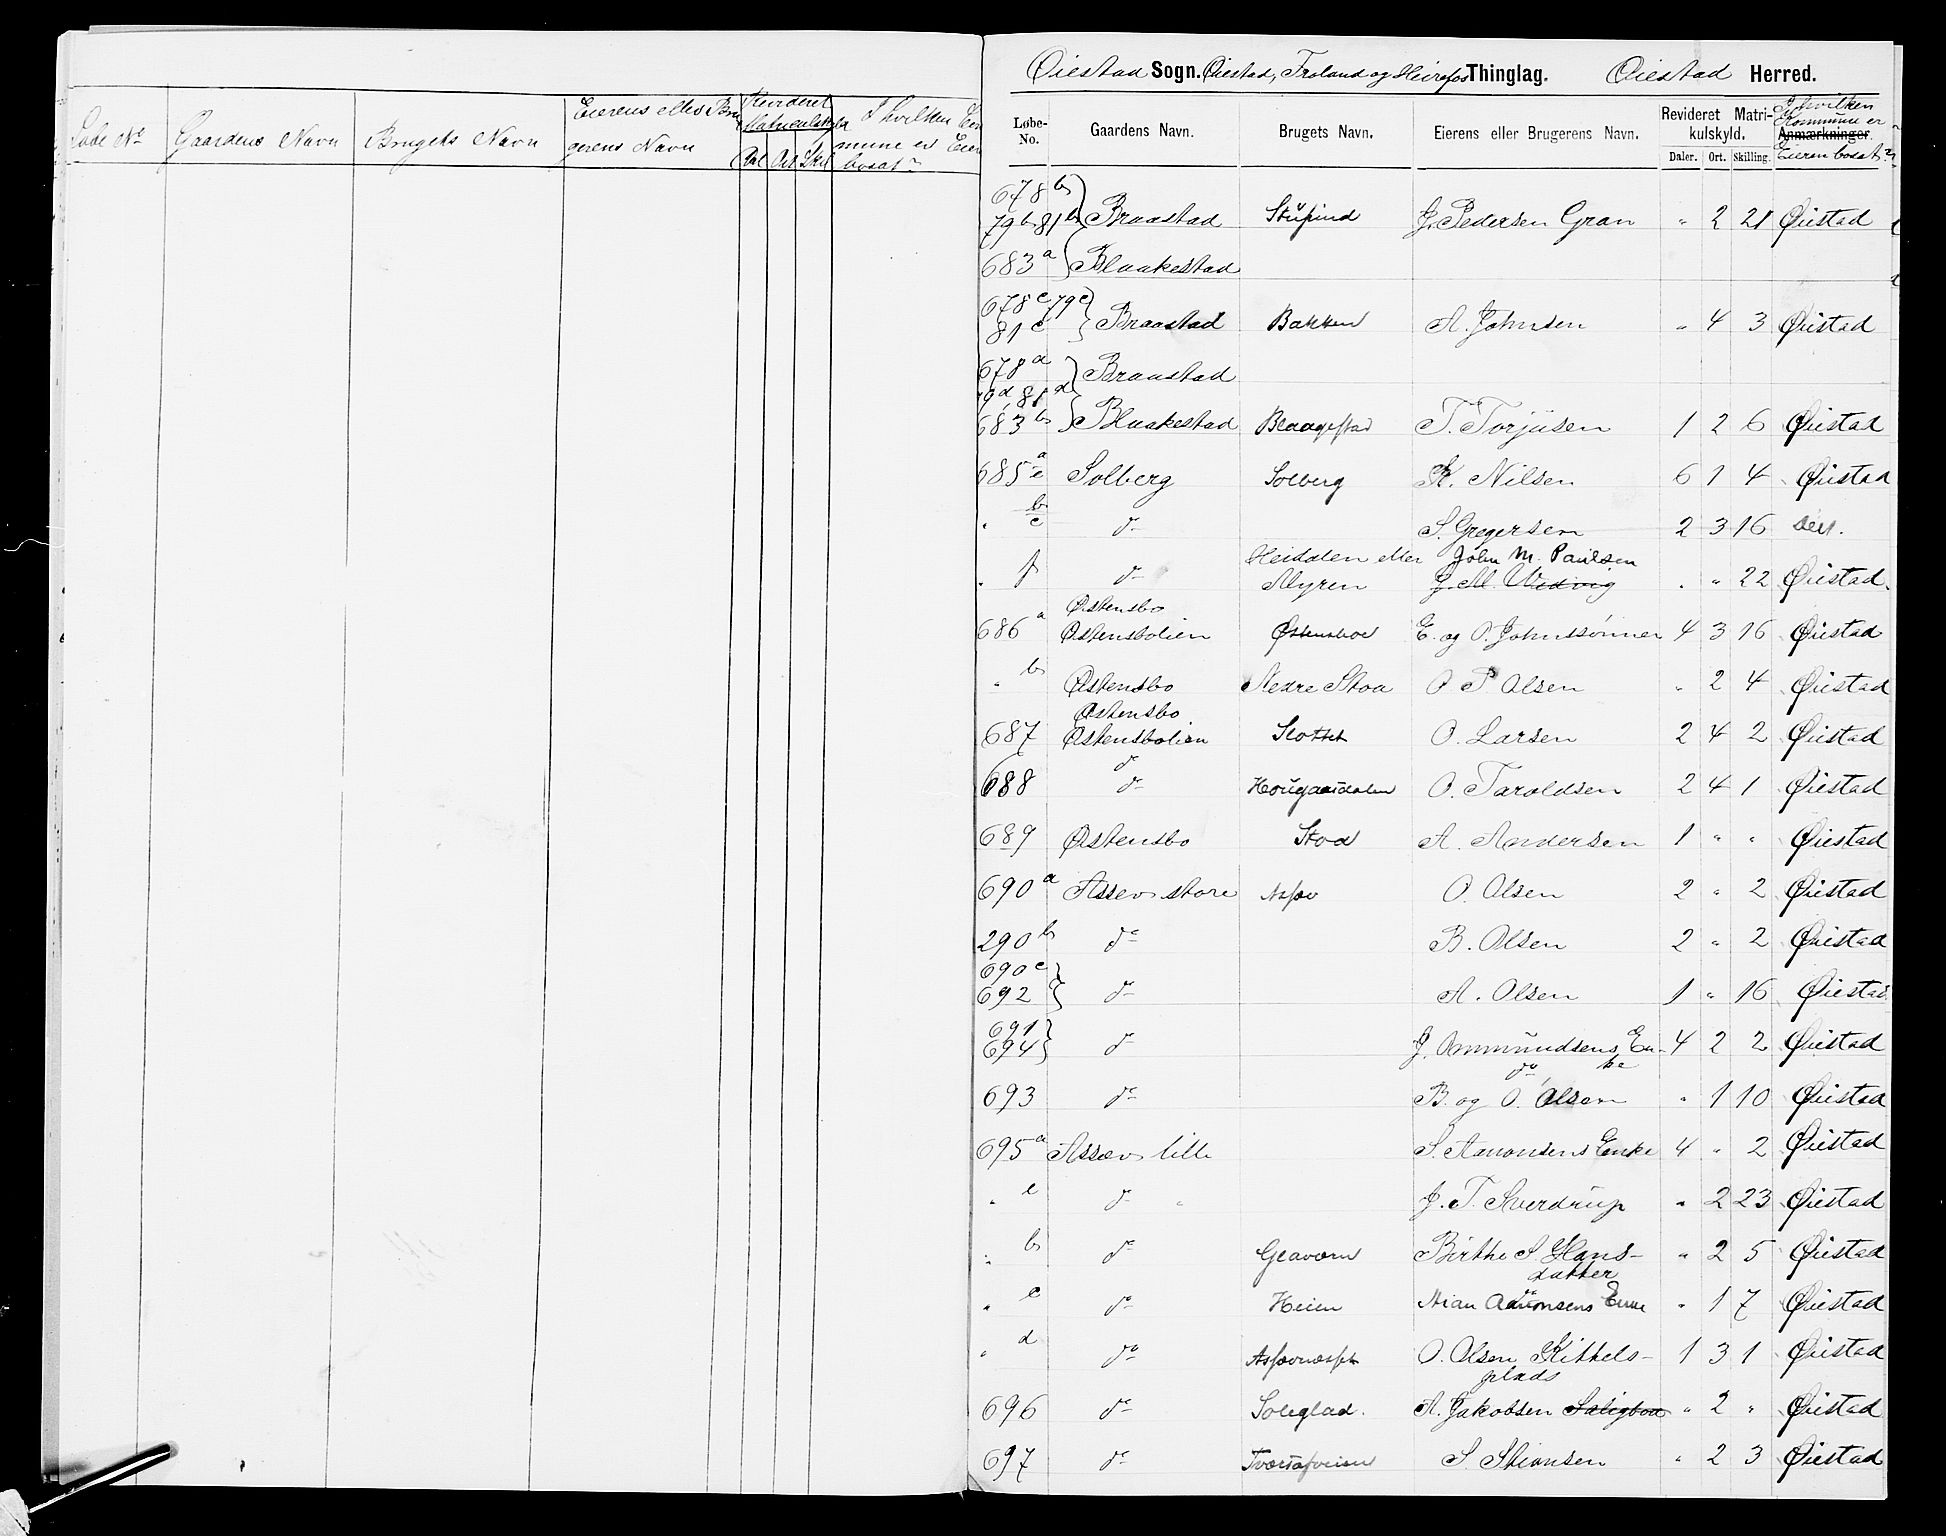 Løbe Nº Gaardens Navn Brugets Navn Eierens eller Bru
gerens Navn Revideret
Matriculskyld
Dal Ort Skil I hvilken Com
mune er Eieren
bosat?
Øiestad Sogn. Øiestad, Froland og Hirefos Thinglag. Øiestad Herred.
Løbe-No. Gaardens Navn. Brugets Navn. Eierens eller Brugerens Navn. Revideret Matrikulskyld. Daler. Ort. Skilling. Anmærkninger. I hvilken Kommune er Eieren bosat?
678 b
79 b 81 b } Braastad Stupind J. Pedersen Gran " 2 21 Øiestad
683 a } Blaakestad
678 c 79 c
81 c } Braastad Bakken A. Johnsen " 4 3 Øiestad
678 d } Braastad
79 d, 81 d
683 b } Blaakestad Blaagestad T. Torjusen 1 2 6 Øiestad
685 a e Solberg Solberg K. Nilsen 6 1 4 Øiestad
" b c do S. Gregersen 2 3 16 ders.
Heidalen eller John M. Paulsen
" f do Myren J. M. Vedvig " " 22 Øiestad
Østensbo
686 a Østensbolien Østensboe E. og O. Johnssønner 4 3 16 Øiestad
" b Østensbo Nedre Stoa O P Olsen " 2 4 Øiestad
Østensbo
687 Østensbolien Slottet O. Larsen 2 4 2 Øiestad
do
688 do Hougaasdalen O. Taraldsen 2 4 1 Øiestad
689 Østensbo Stod A. Andersen 1 " " Øiestad
690 a Assev store Assæv O. Olsen 2 " 2 Øiestad
290 b do B. Olsen 2 " 2 Øiestad
690 c }
692 } do A. Olsen 1 " 16 Øiestad
691 }
694 } do J. Ommundsens Enke 4 2 2 Øiestad
do
693 do B. og O. Olsen " 1 10 Øiestad
695 a Assæv lille S. Aanonsens Enke 4 " 2 Øiestad
" e do " J. T. Sverdrup " 2 23 Øiestad
" b do Geaværn Birthe S Hans-
datter " 2 5 Øiestad
" c do Heien Nian Aanonsens Enke " 1 7 Øiestad
" d do Assævnæsset O. Olsen Kittels-
plads 1 3 1 Øiestad
696 do Soleglad. A. Jakobsen Saligboa " 2 " Øiestad
697 do Tværsafveien S. Stiansen " 2 3 Øiestad